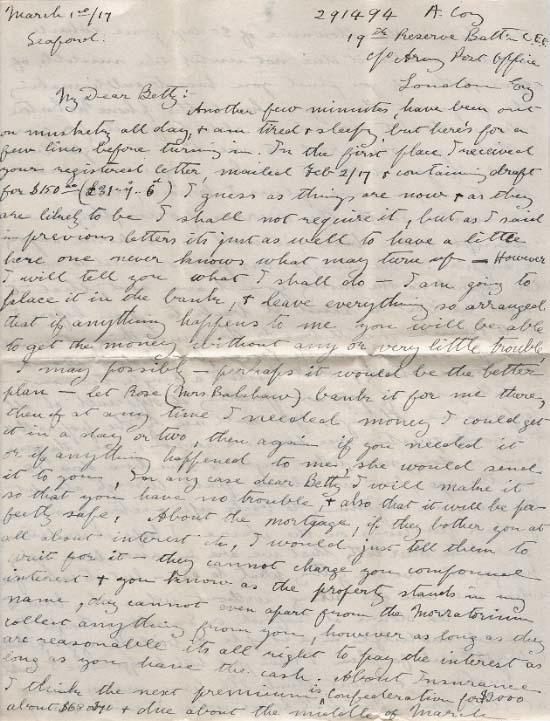 March 1st/17
Seaford.
291494 A. Coy
19th Reserve Battn C.E.F.
c/o Army Post Office
London Eng
My Dear Betty:
Another few minutes, have been out
on musketry all day, & am tired & sleepy, but here's for a
few lines before turning in. In the first place I received
your registered letter, mailed Feb 2/17 & containing draft
for $150.00 (£31-9-6) I guess as things are now & as they
are likely to be I shall not require it, but as I said
in previous letters its just as well to have a little
here one never knows what may turn up — However
I will tell you what I shall do — I am going to
place it in the bank, & leave everything so arranged
that if anything happens to me you will be able
to get the money without any or very little trouble
I may possibly — perhaps it would be the better
plan — let Rose (Mrs Balshaw) bank it for me there,
then if at any time I needed money I could get
it in a day or two, then again if you needed it
or if anything happened to me, she would send
it to you, In any case dear Betty I will make it
so that you have no trouble, & also that it will be per-
fectly safe. About the mortgage, if they bother you at
all about interest etc, I would just tell them to
wait for it — they cannot charge you compound
interest & you know as the property stands in my
name, they cannot even apart from the Morratorium
collect anything from you, however as long as they
are reasonable its all right to pay the interest as
long as you have the cash. About Insurance
I think the next premium is Confederation for $1000
about & due about the middle of March